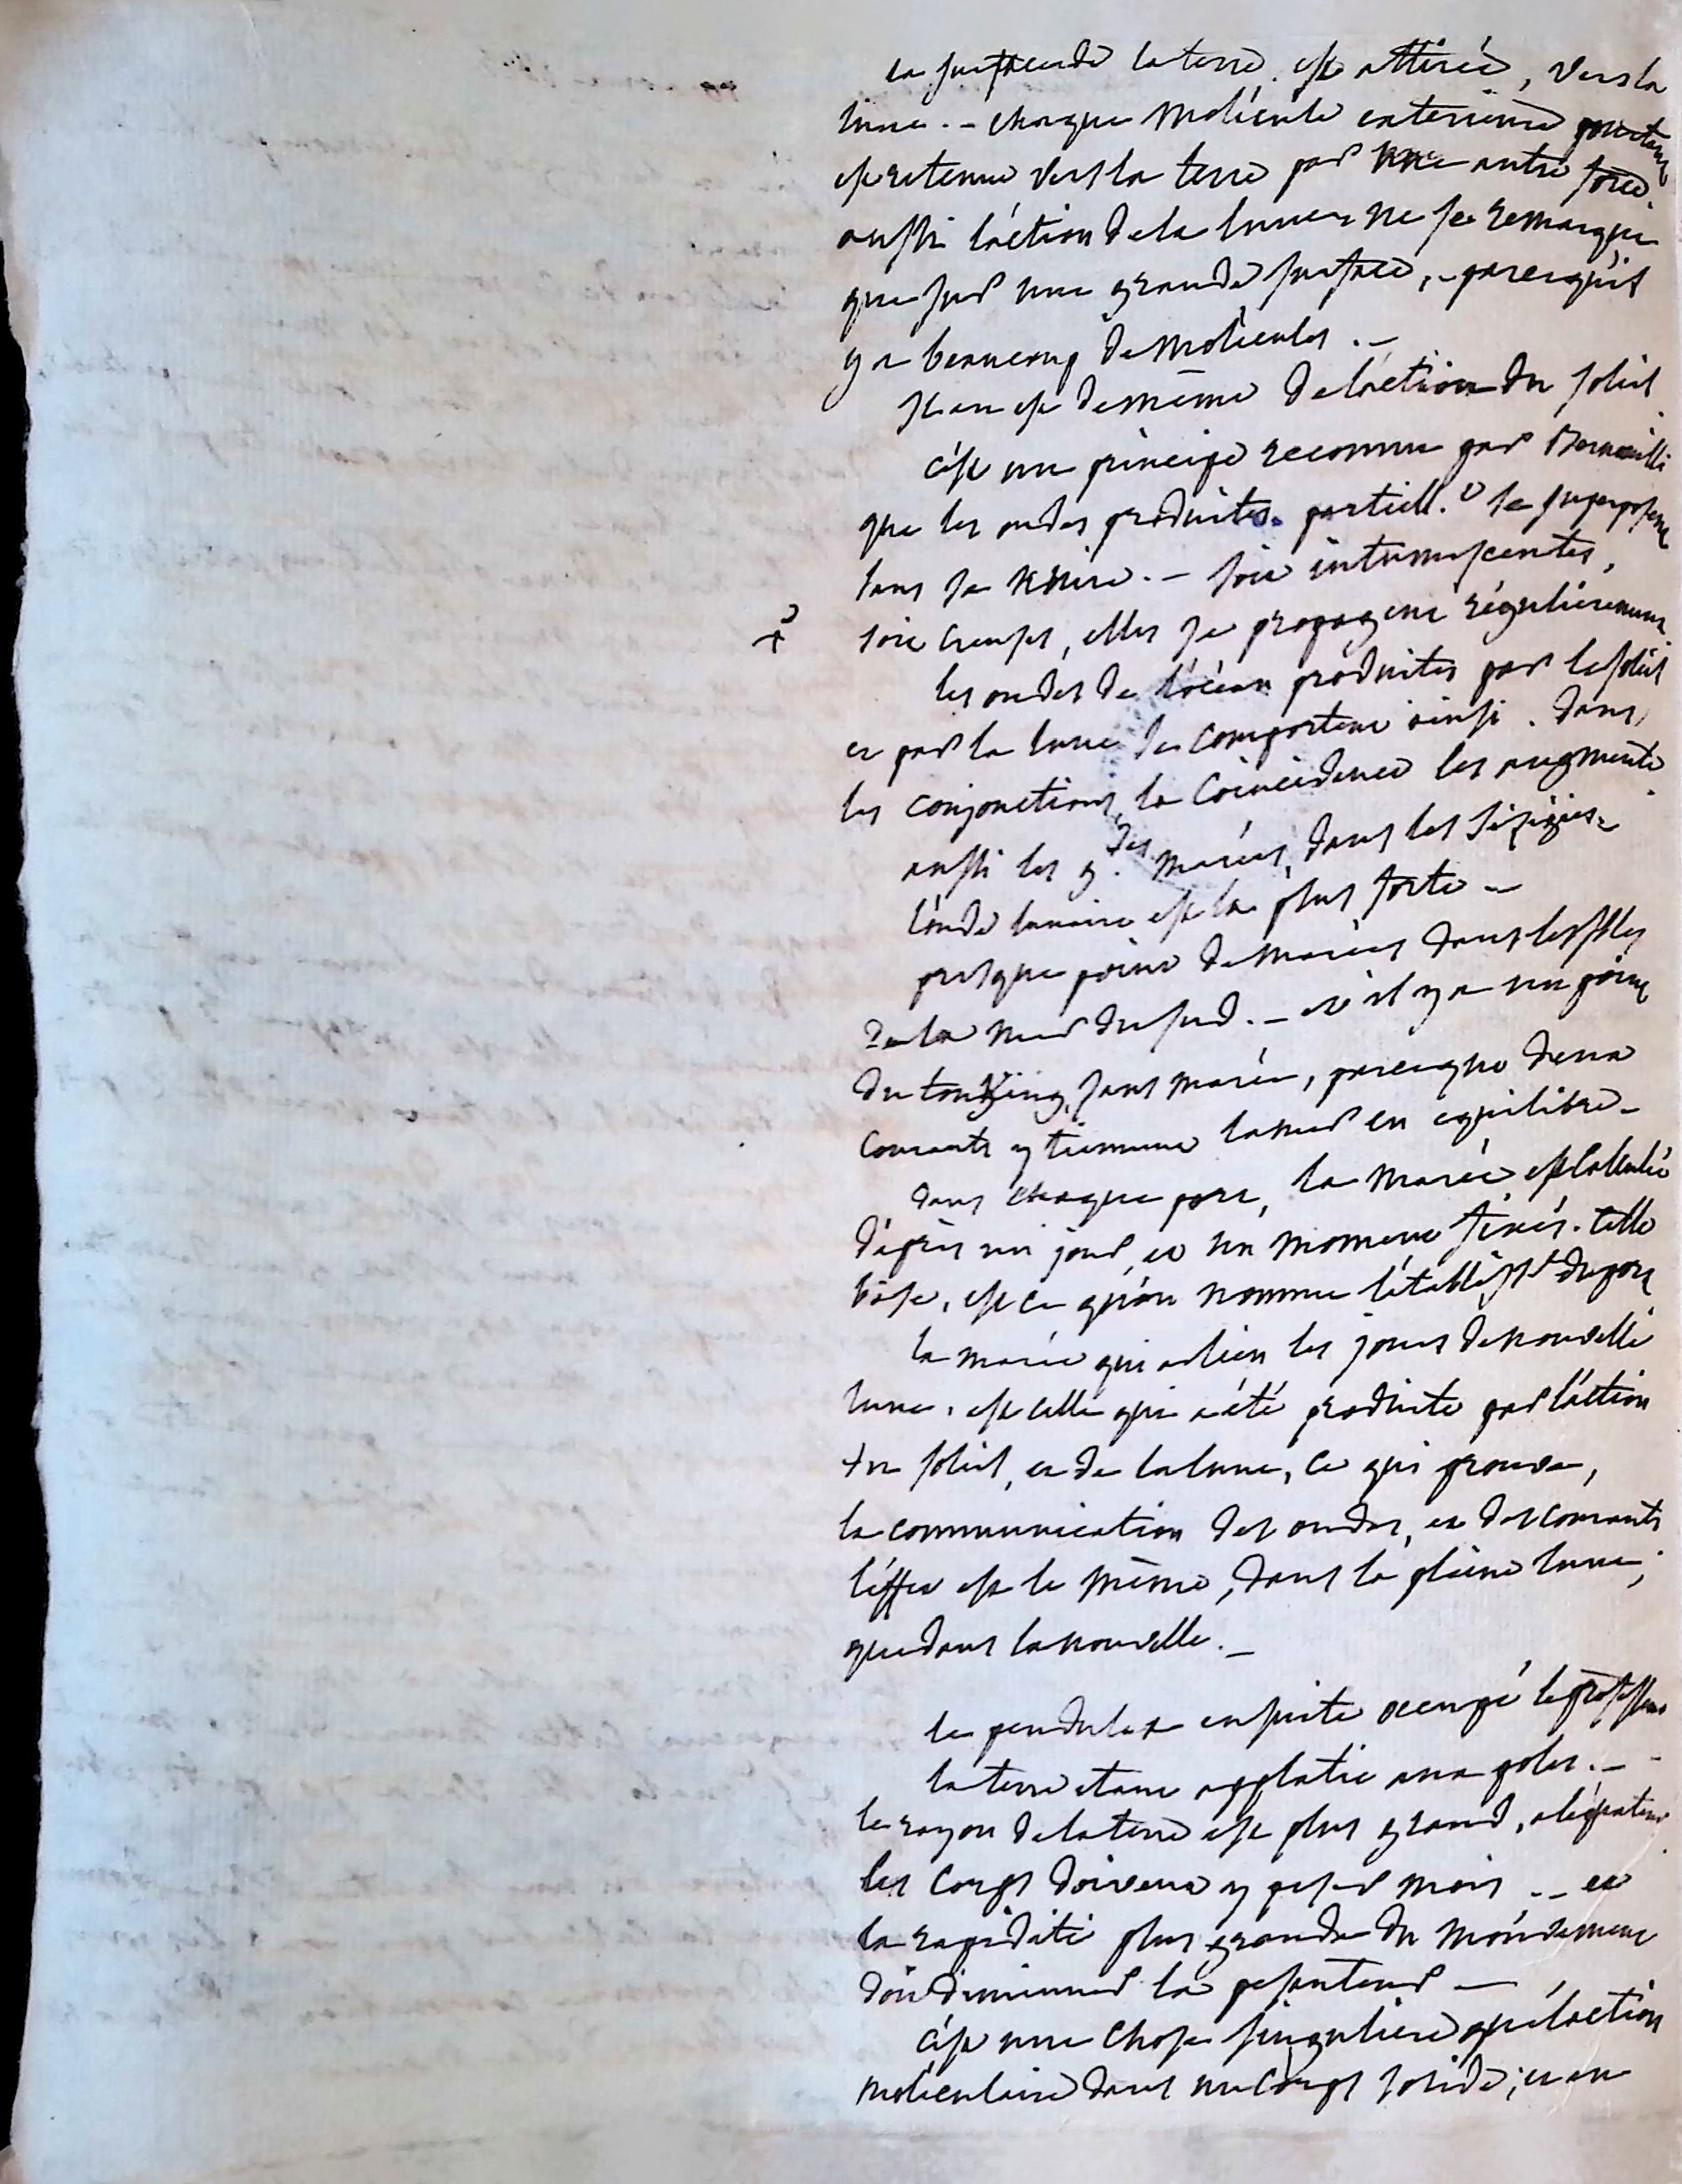 la surface de la terre est attirée, vers la
lune. - chaque molécule exterieure pourtant
est retenue vers la terre par une autre force.
aussi l'action de la lune ne se remarque
que sur une grande surface, - parcequ'il
y a beaucoup de molécules. -
Il en est de même de l'action du soleil
c'est un principe reconnu par Bernouilli
que les ondes produites partiell.t se superposent
sans se nuire. - soit intumescentes,
soit creuses, elles se propagent régulièrement
les ondes de l'océan produites par le soleil
et par la lune se comportent ainsi. dans
les conjonctions, la coincidence les augmente
aussi les g.des marées, dans les sizigies -
l'onde lunaire est la plus forte -
presque point de marées dans les isles
de la mer du sud. - et il y a un point
du tonking, sans marée, parceque deux
courants y tiennent la mer en equilibre -
dans chaque port, la marée est calculée
d'après un jour, et un moment fixés. telle
base, est ce qu'on nomme l'établisst du port
la marée qui a lieu les jours de nouvelle
lune, est celle qui a été produite par l'action
du soleil, et de la lune, ce qui prouve,
la communication des ondes, et des courants
l'effet est le même, dans la pleine lune,
que dans la nouvelle. -
le pendule a ensuite occupé le professeur
la terre etant applatie aux poles. -
le rayon de la terre est plus grand, a l'équateur
les corps doivent y peser moins - et
la rapidité plus grande du mouvement
doit diminuer la pesanteur -
c'est une chose singuliere que l'action
moléculaire dans un corps solide; et en